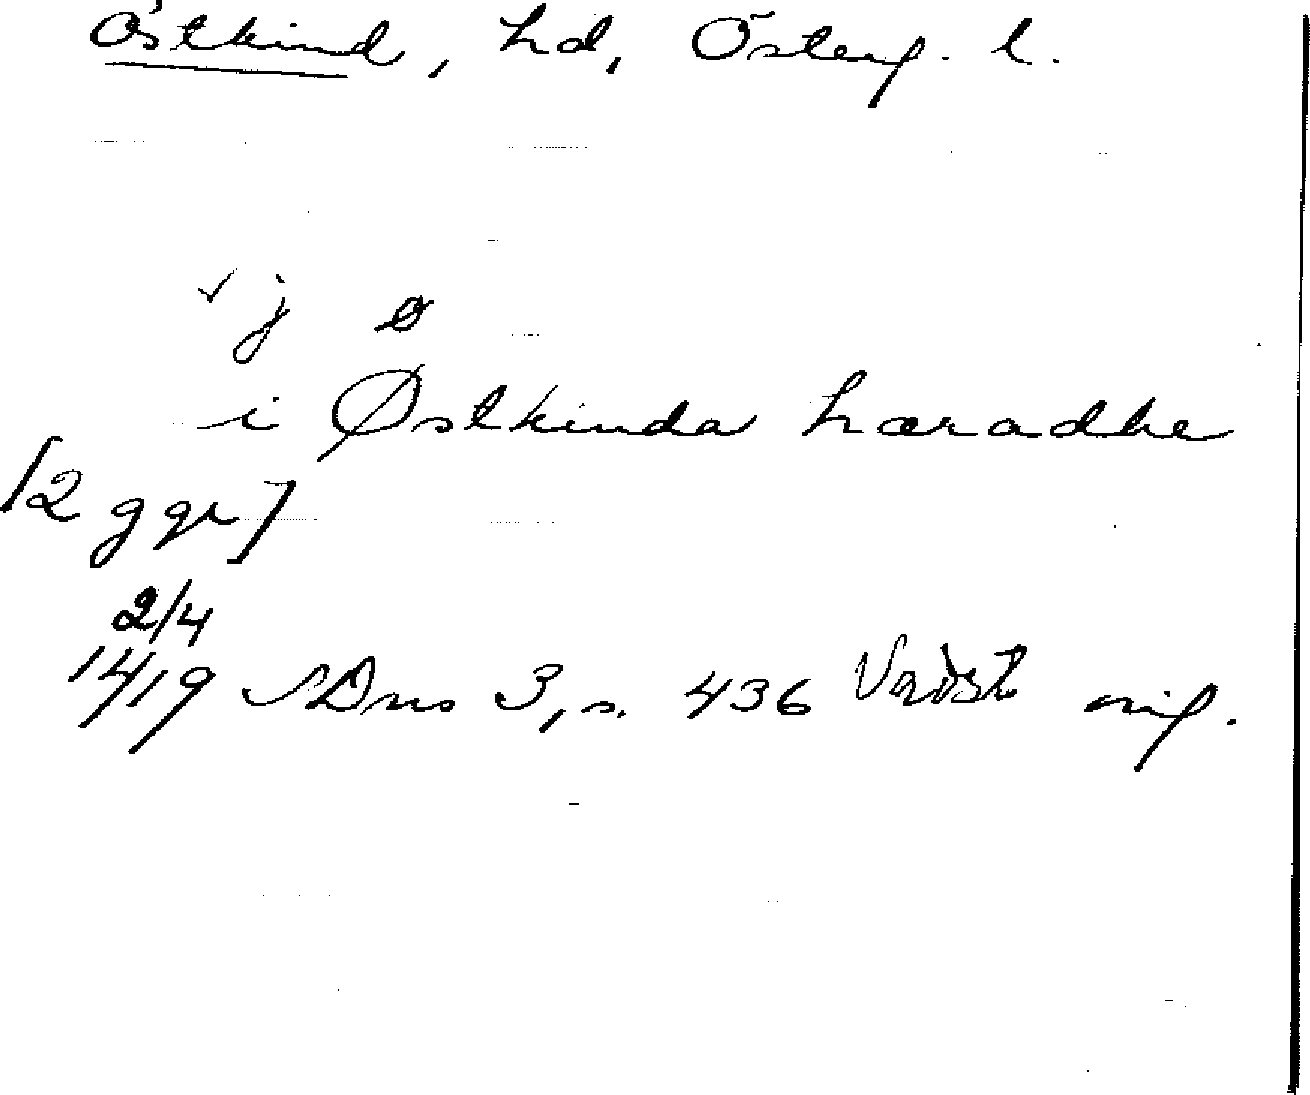 Östkind, hd, Österg. l.
j ø
i Østkinda hæradhe
[2 ggr]
2/4
1419 SDns 3, s. 436 Vadst orig.